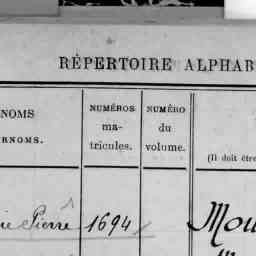 RÉPERTOIRE ALPHAB
NOMS
RNOMS.
NUMÉROS
ma-
tricules.
NUMÉRO
du
volume.
(Il doit être
Pierre 1694 Mou